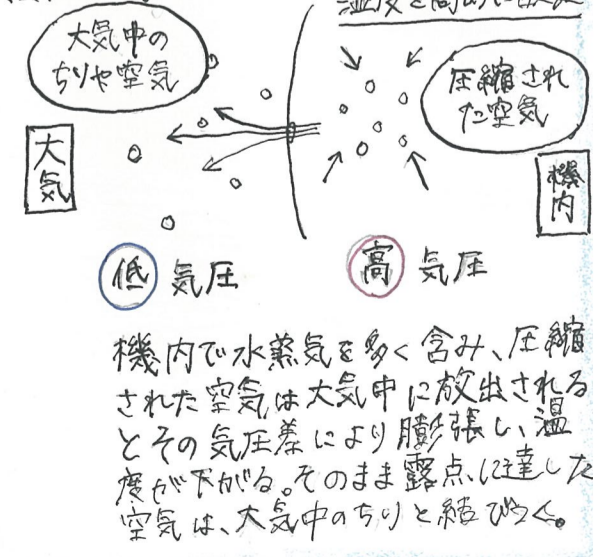 大気中の
ちりや空気
圧縮され
た空気
大気
機内
低気圧
高気圧
機内で水蒸気を多く含み、圧縮
された空気は大気中に放出される
とその気圧差により膨張し、温
度が下がる。そのまま露点に達した
空気は、大気中のちりと結びつく。